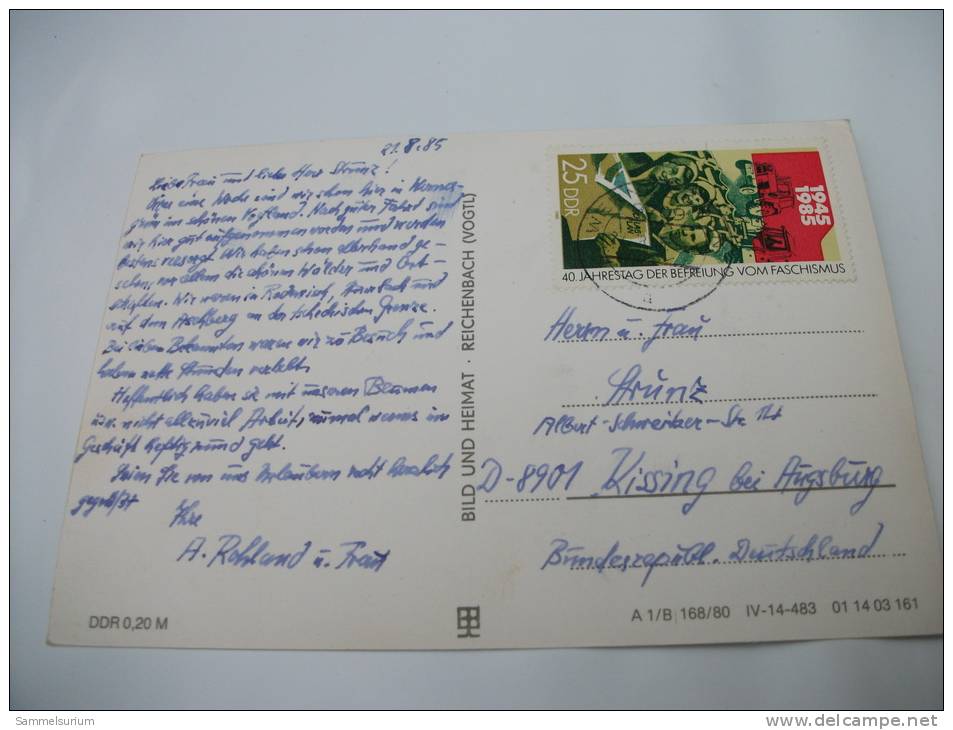 21.8.85
Liebe Frau und lieber Herr Strünz!
Über eine Woche sind wir schon hier in
grün im schönen Vogtland. Nach guter Fahrt sind
wir hier gut aufgenommen worden und werden
bestens versorgt. Wir haben schon allerhand ge-
sehen, vor allem die schönen Wälder und Ort-
schaften. Wir waren in Rodewisch, Auerbach und
auf dem Aschberg an der tschechischen Grenze.
Bei lieben Bekannten waren wir zu Besuch und
haben nette Stunden verlebt.
Hoffentlich haben Sie mit unseren Blumen
usw. nicht allzuviel Arbeit, zumal wenns im
Geschäft heftig rund geht.
Seien Sie von uns Urlaubern recht herzlich
gegrüßt
Ihre
A. Rohland u. Frau
DDR 0,20 M
BILD UND HEIMAT · REICHENBACH (VOGTL)
25 DDR
1945
1985
40. JAHRESTAG DER BEFREIUNG VOM FASCHISMUS
Herrn u. Frau
Strünz
Albert-Schweitzer-Str.
D-8901 Kissing bei Augsburg
Bundesrepubl. Deutschland
A 1/B 168/80 IV-14-483 01 14 03 161
Sammelsurium
www.delcampe.net